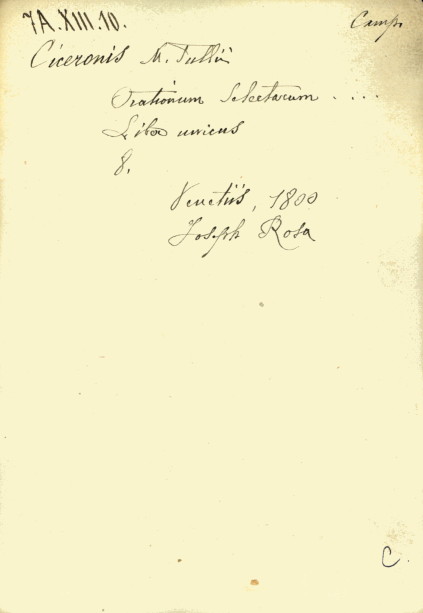 7A.XIII.10.
Camp.
Ciceronis M. Tullii
Orationum Selectarum ....
Liber unicus
8.
Venetiis, 1800
Joseph Rosa
C.